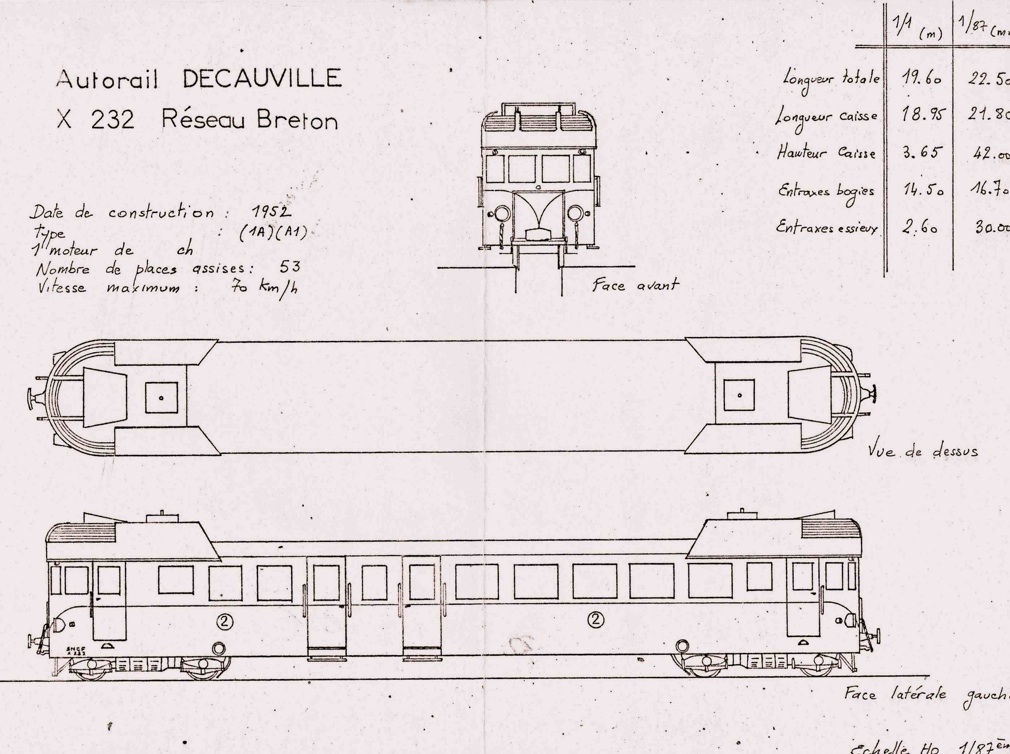 Autorail DECAUVILLE
X 232 Réseau Breton
Date de construction : 1952
type : (1A)(A1)
1 moteur de ch
Nombre de places assises : 53
Vitesse maximum : 70 km/h
Face avant
1/1 (m) 1/87 (m
Longueur totale 19.60 22.50
Longueur caisse 18.95 21.80
Hauteur Caisse 3.65 42.00
Entraxes bogies 14.50 16.70
Entraxes essieux 2.60 30.00
Vue de dessus
2
2
Face latérale gauch
Echelle Ho 1/87èm